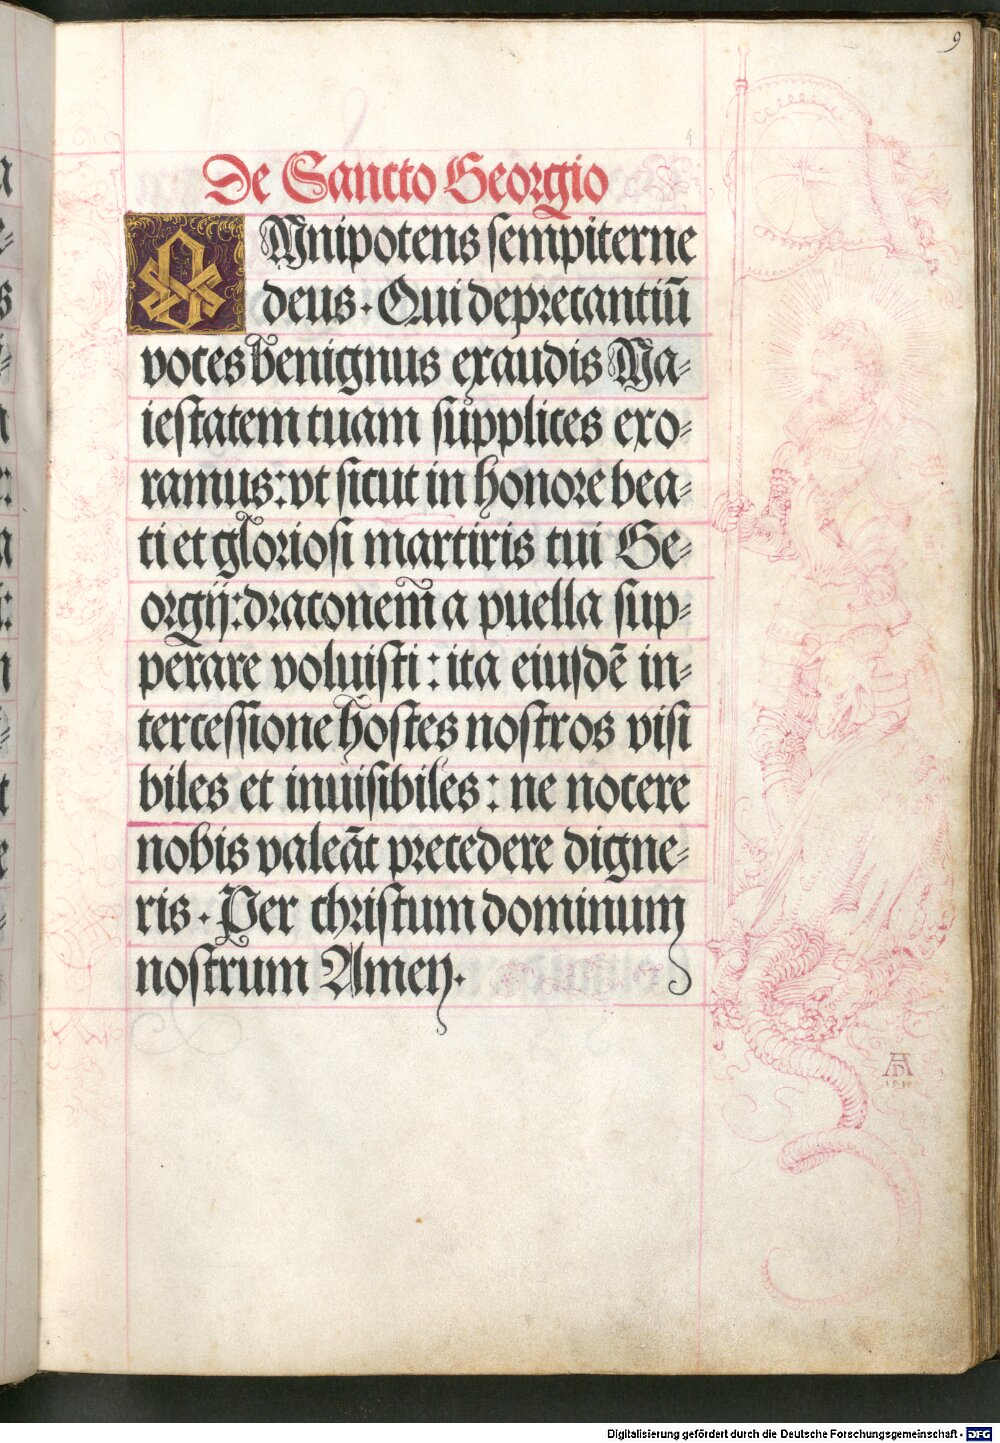 9
4
De Sancto Georgio
OMnipotens sempiterne
deus. Qui deprecantiū
voces benignus exaudis Ma⸗
iestatem tuam supplices exo⸗
ramus: vt sicut in honore bea⸗
ti et gloriosi martiris tui Ge⸗
orgij: draconem̄ a puella sup⸗
perare voluisti: ita eiusdē in⸗
tercessione hostes nostros visi
biles et inuisibiles: ne nocere
nobis valeāt precedere digne⸗
ris. Per christum dominum
nostrum Amen.
AD
1519
Digitalisierung gefördert durch die Deutsche Forschungsgemeinschaft - DFG